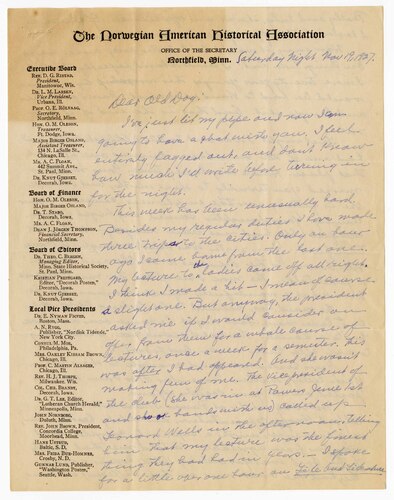 The Norwegian American Historical Association
OFFICE OF THE SECRETARY
Northfield, Minn.
Saturday Night Nov 19, 1927.
Executive Board
REV. D. G. RISTAD,
President,
Manitowoc, Wis.
DR. L. M. LARSEN,
Vice President,
Urbana, Ill.
PROF. O. E. RÖLVAAG,
Secretary,
Northfield, Minn.
HON. O. M. OLESON,
Treasurer,
Ft. Dodge, Iowa.
MAJOR BIRGER OSLAND,
Assistant Treasurer,
134 N. LaSalle St.
Chicago, Ill.
MR. A. C. FLOAN,
442 Summit Ave.
St. Paul, Minn.
DR. KNUT GJERSET,
Decorah, Iowa.
Board of Finance
HON. O. M. OLESON,
MAJOR BIRGER OSLAND,
DR. T. STABO,
Decorah, Iowa.
MR. A. C. FLOAN,
DEAN J. JÖRGEN THOMPSON,
Financial Secretary,
Northfield, Minn.
Board of Editors
DR. THEO. C. BLEGEN,
Managing Editor,
Minn. State Historical Society,
St. Paul, Minn.
KRISTIAN PRESTGARD,
Editor, "Decorah Posten,"
Decorah, Iowa.
DR. KNUT GJERSET,
Decorah, Iowa.
Local Vice Presidents
Boston, Mass.
A. N. RYGG,
Publisher, "Nordisk Tidende,"
New York City.
Philadelphia, Pa.
Chicago, Ill.
Chicago, Ill.
REV. H. J. THORPE,
Milwaukee, Wis.
Decorah, Iowa.
DR. G. T. LEE, Editor
"Lutheran Church Herald,"
Minneapolis, Minn.
Duluth, Minn.
REV. JOHN BROWN, President,
Concordia College,
Moorhead, Minn.
Baltic, S. D.
Crosby, N. D.
GUNNAR LUND, Publisher,
"Washington Posten,"
Seattle, Wash.
Dear Old Dog:
I've just let my pipe and now I am
going to have a chat with you. I feel
entirely fagged out, and don't know
how much I'd write before turning in
for the night.
This week has been unusually hard.
Besides my regular duties I have made
three trips to the cities. Only an hour
ago I came home from the last one.
My lecture to Ladies came off all right.
I think I made a hit – I mean of course
a slight one. But anyway, the president
asked me if I would consider an
offer from them for a whole course of
lectures, once a week for a semester; this
was after I had appeared. And she wasn't
making fun of me. The vice president of
the club (she was in at Pawers June 1st
and shook hands with us) called up
Leonard Wells in the afternoon, telling
him that my lecture was the finest
thing they had had in years. – I spoke
for a little over one hour on Life and Literature